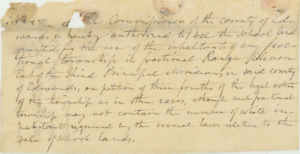 of the Commissioner of the county of Ed-
wards is hereby authorized to sell the School land
granted for the use of the inhabitants of any frac-
tional township in fractional Range fifteen
East of the third Principal Meridian, in said county
of Edwards, on petition of three fourths of the legal voters
of the township as in other cases, although such fractional
township may not contain the number of white in-
habitants required by the several laws relative to the
sale of school lands.